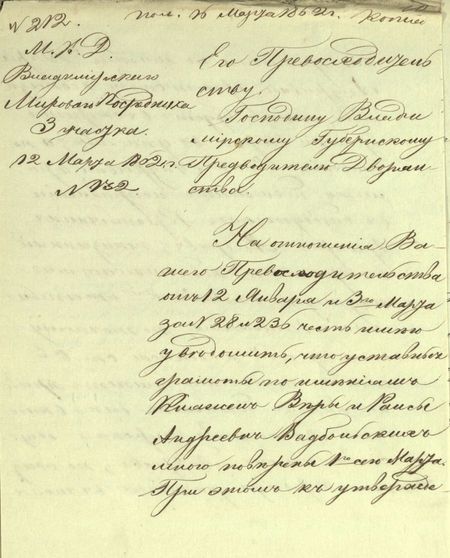 № 212.
пол. 16 Марта 1862 г.
Копия
М. В. Д.
Владимирского
Мироваго Посредника
3 участка.
12 Марта 1862 г.
№ 132
Его Превосходитель
ству.
Господину Влади
мірскому Губернскому
Предводителю Дворян
ства.
На отношенія Ва
шего Превосходительства
отъ 12 Января и 3го Марта
за № 28 и 236 честь имѣю
увѣдомить, что уставныя
грамоты по имѣніямъ
Княженъ Вѣры и Раисы
Андреевнъ Вадбольскихъ
мною повѣрены 1го сего Марта.
При этомъ къ утвержде